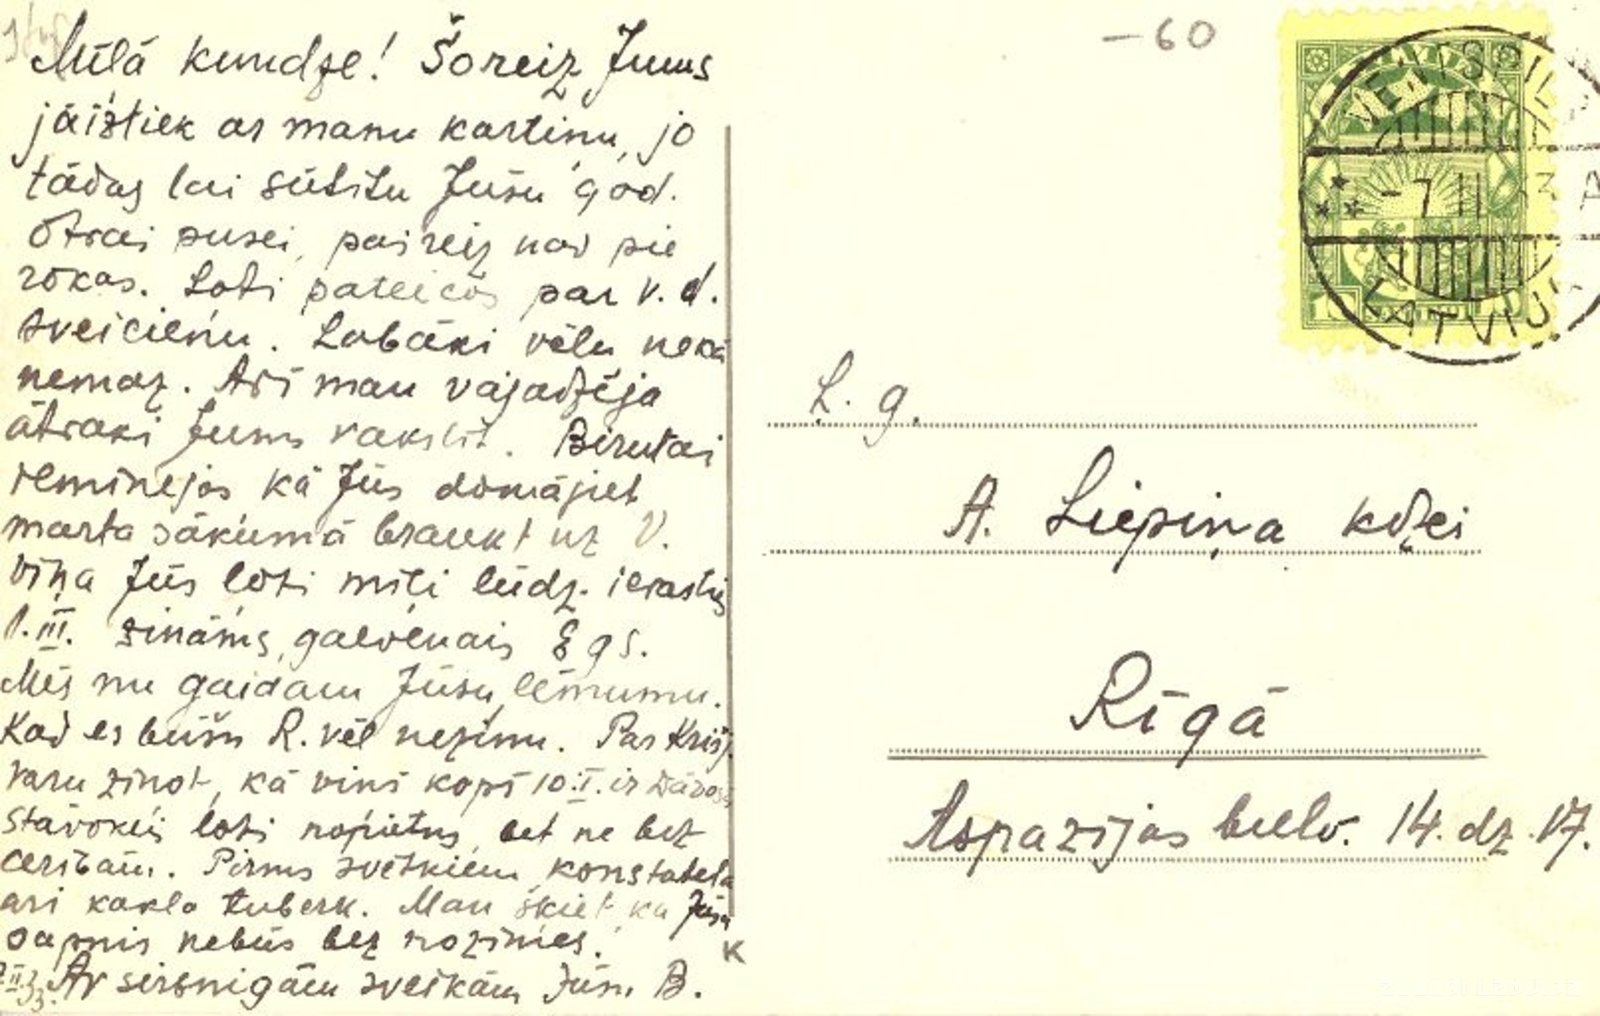 Mīļā kundze! Šoreiz Jums
jāiztiek ar manu kartiņu, jo
tādas lai sūtītu Jūsu god.
Otrai pusei, paireiz nav pie
rokas. Ļoti pateicos par v. d.
sveicienu. Labāki vēlu nekā
nemaz. Arī man vajadzēja
ātraki Jums rakstīt. Birutai
reminejos kā Jūs domājiet
marta sākumā braukt uz V.
Viņa Jūs ļoti mīļi lūdz. ierasties
1. III. zināms, galvenais Egs.
Mēs nu gaidam Jūsu lēmumu.
Kad es būšu R. vēl nezinu. Par Krišj.
varu ziņot, kā viņš kopš 10.I. ir Dāvosā
stāvoklis ļoti nopietns, bet ne bez
cerībām. Pirms svētkiem konstatēta
arī kakla tuberk. Man šķiet, ka Jūsu
sapnis nebūs bez nozīmes.
Ar sirsnigām sveikām Jūsu B.
K
-60
VENTSPILS
-7 II 33 A
LATVIJA
Ļ. g.
A. Liepiņa kdzei
Rīgā
Aspazijas bulv. 14. dz. 17.